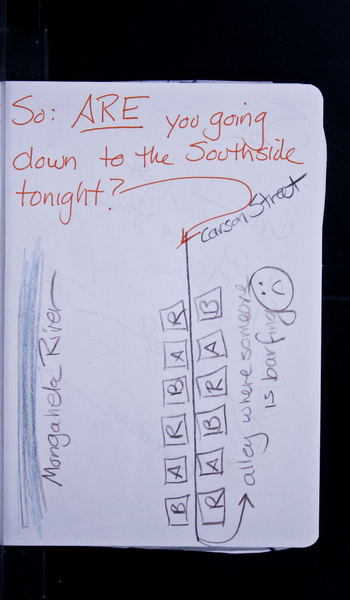 So: ARE you going
down to the Southside
tonight?
Carson Street
Mongahela River
B A R B A R
R A B R A B
alley where someone
is barfing